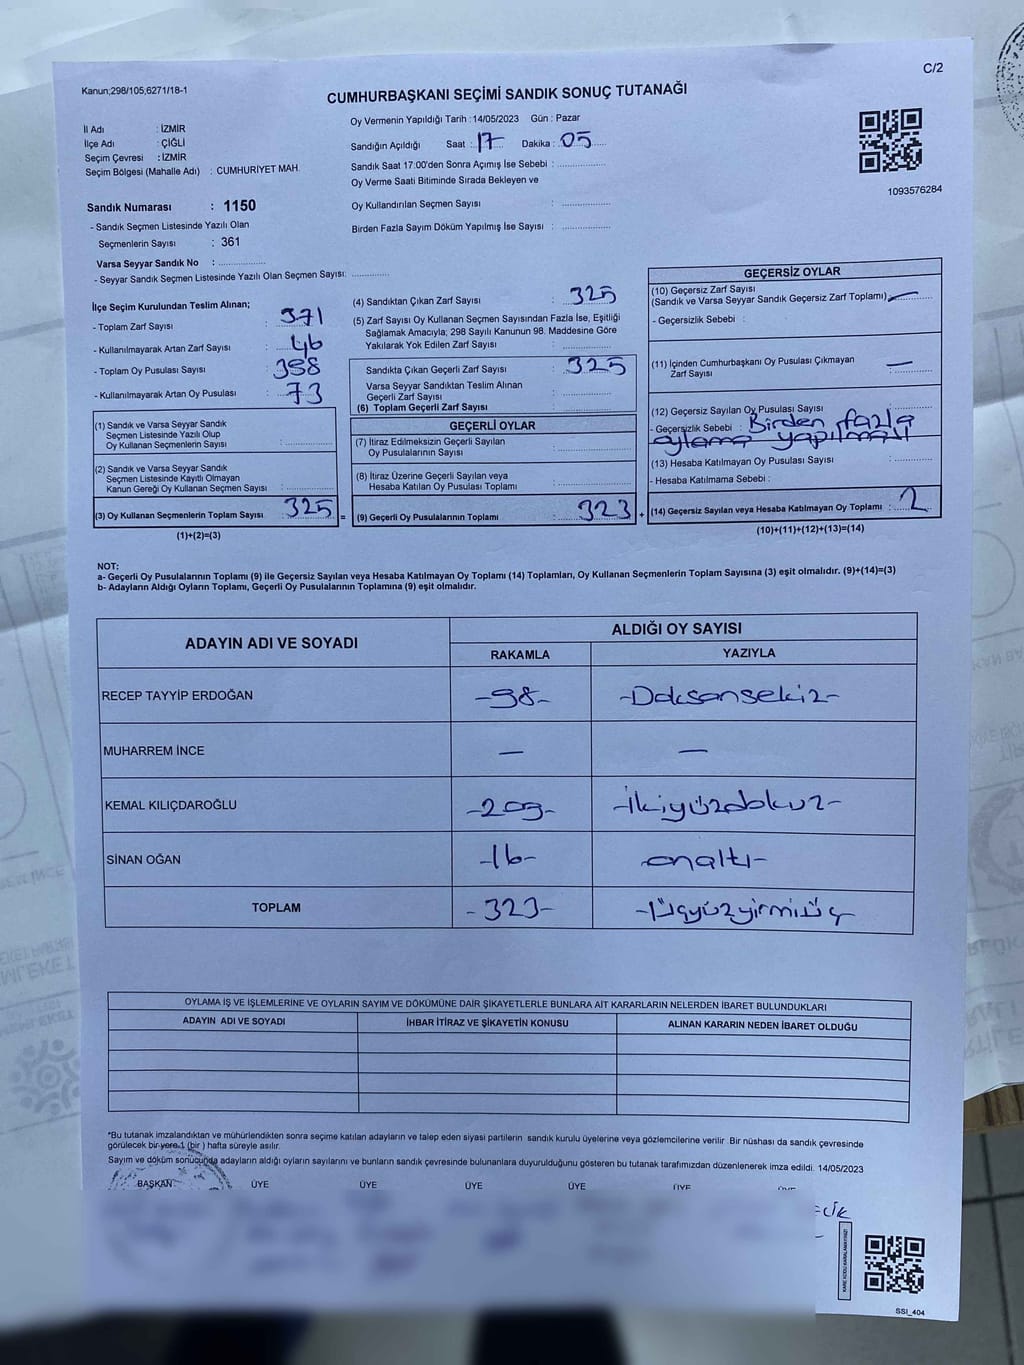 Kanun;298/105;6271/18-1
C/2
CUMHURBAŞKANI SEÇİMİ SANDIK SONUÇ TUTANAĞI
İl Adı : İZMİR
İlçe Adı : ÇİĞLİ
Seçim Çevresi : İZMİR
Seçim Bölgesi (Mahalle Adı) : CUMHURİYET MAH.
Sandık Numarası : 1150
- Sandık Seçmen Listesinde Yazılı Olan
Seçmenlerin Sayısı : 361
Varsa Seyyar Sandık No : ....................
- Seyyar Sandık Seçmen Listesinde Yazılı Olan Seçmen Sayısı: ..............
Oy Vermenin Yapıldığı Tarih :14/05/2023 Gün : Pazar
Sandığın Açıldığı Saat : 17 Dakika : 05
Sandık Saat 17:00'den Sonra Açımış İse Sebebi : ..................
Oy Verme Saati Bitiminde Sırada Bekleyen ve
Oy Kullandırılan Seçmen Sayısı : ..................
Birden Fazla Sayım Döküm Yapılmış İse Sayısı : ..................
1093576284
İlçe Seçim Kurulundan Teslim Alınan;
- Toplam Zarf Sayısı : 371
- Kullanılmayarak Artan Zarf Sayısı : 46
- Toplam Oy Pusulası Sayısı : 398
- Kullanılmayarak Artan Oy Pusulası : 73
(1) Sandık ve Varsa Seyyar Sandık
Seçmen Listesinde Yazılı Olup
Oy Kullanan Seçmenlerin Sayısı : ..................
(2) Sandık ve Varsa Seyyar Sandık
Seçmen Listesinde Kayıtlı Olmayan
Kanun Gereği Oy Kullanan Seçmen Sayısı : ..................
(3) Oy Kullanan Seçmenlerin Toplam Sayısı : 325 =
(1)+(2)=(3)
(4) Sandıktan Çıkan Zarf Sayısı : 325
(5) Zarf Sayısı Oy Kullanan Seçmen Sayısından Fazla İse, Eşitliği
Sağlamak Amacıyla; 298 Sayılı Kanunun 98. Maddesine Göre
Yakılarak Yok Edilen Zarf Sayısı : ..................
Sandıkta Çıkan Geçerli Zarf Sayısı : 325
Varsa Seyyar Sandıktan Teslim Alınan
Geçerli Zarf Sayısı : ..................
(6) Toplam Geçerli Zarf Sayısı : ..................
GEÇERLİ OYLAR
(7) İtiraz Edilmeksizin Geçerli Sayılan
Oy Pusulalarının Sayısı : ..................
(8) İtiraz Üzerine Geçerli Sayılan veya
Hesaba Katılan Oy Pusulası Toplamı : ..................
(9) Geçerli Oy Pusulalarının Toplamı : 323 +
GEÇERSİZ OYLAR
(10) Geçersiz Zarf Sayısı
(Sandık ve Varsa Seyyar Sandık Geçersiz Zarf Toplamı) : —
- Geçersizlik Sebebi :
(11) İçinden Cumhurbaşkanı Oy Pusulası Çıkmayan
Zarf Sayısı : —
(12) Geçersiz Sayılan Oy Pusulası Sayısı : ............
- Geçersizlik Sebebi : Birden fazla
oylama yapılması
(13) Hesaba Katılmayan Oy Pusulası Sayısı : ............
- Hesaba Katılmama Sebebi :
(14) Geçersiz Sayılan veya Hesaba Katılmayan Oy Toplamı : 2
(10)+(11)+(12)+(13)=(14)
NOT:
a- Geçerli Oy Pusulalarının Toplamı (9) ile Geçersiz Sayılan veya Hesaba Katılmayan Oy Toplamı (14) Toplamları, Oy Kullanan Seçmenlerin Toplam Sayısına (3) eşit olmalıdır. (9)+(14)=(3)
b- Adayların Aldığı Oyların Toplamı, Geçerli Oy Pusulalarının Toplamına (9) eşit olmalıdır.
ADAYIN ADI VE SOYADI ALDIĞI OY SAYISI
RAKAMLA YAZIYLA
RECEP TAYYİP ERDOĞAN -98- -Doksansekiz-
MUHARREM İNCE — —
KEMAL KILIÇDAROĞLU -209- -İkiyüzdokuz-
SİNAN OĞAN -16- -onaltı-
TOPLAM -323- -Üçyüzyirmiüç
OYLAMA İŞ VE İŞLEMLERİNE VE OYLARIN SAYIM VE DÖKÜMÜNE DAİR ŞİKAYETLERLE BUNLARA AİT KARARLARIN NELERDEN İBARET BULUNDUKLARI
ADAYIN ADI VE SOYADI İHBAR İTİRAZ VE ŞİKAYETİN KONUSU ALINAN KARARIN NEDEN İBARET OLDUĞU
*Bu tutanak imzalandıktan ve mühürlendikten sonra seçime katılan adayların ve talep eden siyasi partilerin sandık kurulu üyelerine veya gözlemcilerine verilir. Bir nüshası da sandık çevresinde
görülecek bir yere 1 (bir ) hafta süreyle asılır.
Sayım ve döküm sonucunda adayların aldığı oyların sayılarını ve bunların sandık çevresinde bulunanlara duyurulduğunu gösteren bu tutanak tarafımızdan düzenlenerek imza edildi. 14/05/2023
BAŞKAN ÜYE ÜYE ÜYE ÜYE ÜYE
KARE KODU KARALAMAYINIZ!
SSI_404